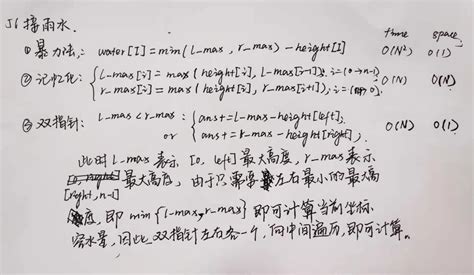 56 接雨水. time space
① 暴力法: water[I]=min(l-max, r-max)-height[I] O(N²) O(1)
② 记忆化: { l-max[i]=max(height[i], l-max[i-1]), i=(0→n-1) O(N) O(N)
r-max[i]=max(height[i], r-max[i+1]), i=
③ 双指针: l-max<r-max: { ans+=l-max-height[left]; O(N) O(1)
or ans+=r-max-height[right];
此时 l-max 表示 [0, left] 最大高度, r-max 表示
[right, n-1] 最大高度, 由于只需要左右最小的最高
度, 即 min{l-max, r-max} 即可计算当前坐标
容水量, 因此, 双指针左右各一个, 向中间遍历, 即可计算。